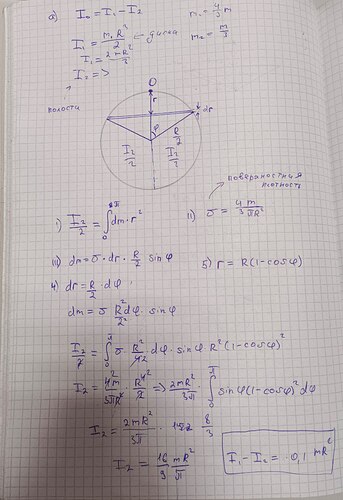 a) I₀ = I₁ - I₂ m₁ = 4/3 m
I₁ = m₁R²/2 ← диска m₂ = m/3
I₁ = 2mR²/3
I₂ = >
полости
O
r
dr
φ
R/2
I₂/2 I₂/2
поверхностная плотность
1) I₂/2 = ∫₀^2π dm · r² II) σ = 4m/3πR²
III) dm = σ · dr · R/2 sinφ 5) r = R(1-cosφ)
4) dr = R/2 · dφ
dm = σ R²/2² dφ · sinφ
I₂/2 = ∫₀^π σ R²/4 · dφ · sinφ · R²(1-cosφ)²
I₂ = 4m/3πR² · R⁴/2 => 2mR²/3π · ∫₀^π sinφ(1-cosφ)² dφ
I₂ = 2mR²/3π · 8/3
I₂ = 16/9 mR²/π
I₁ - I₂ = 0,1 mR²